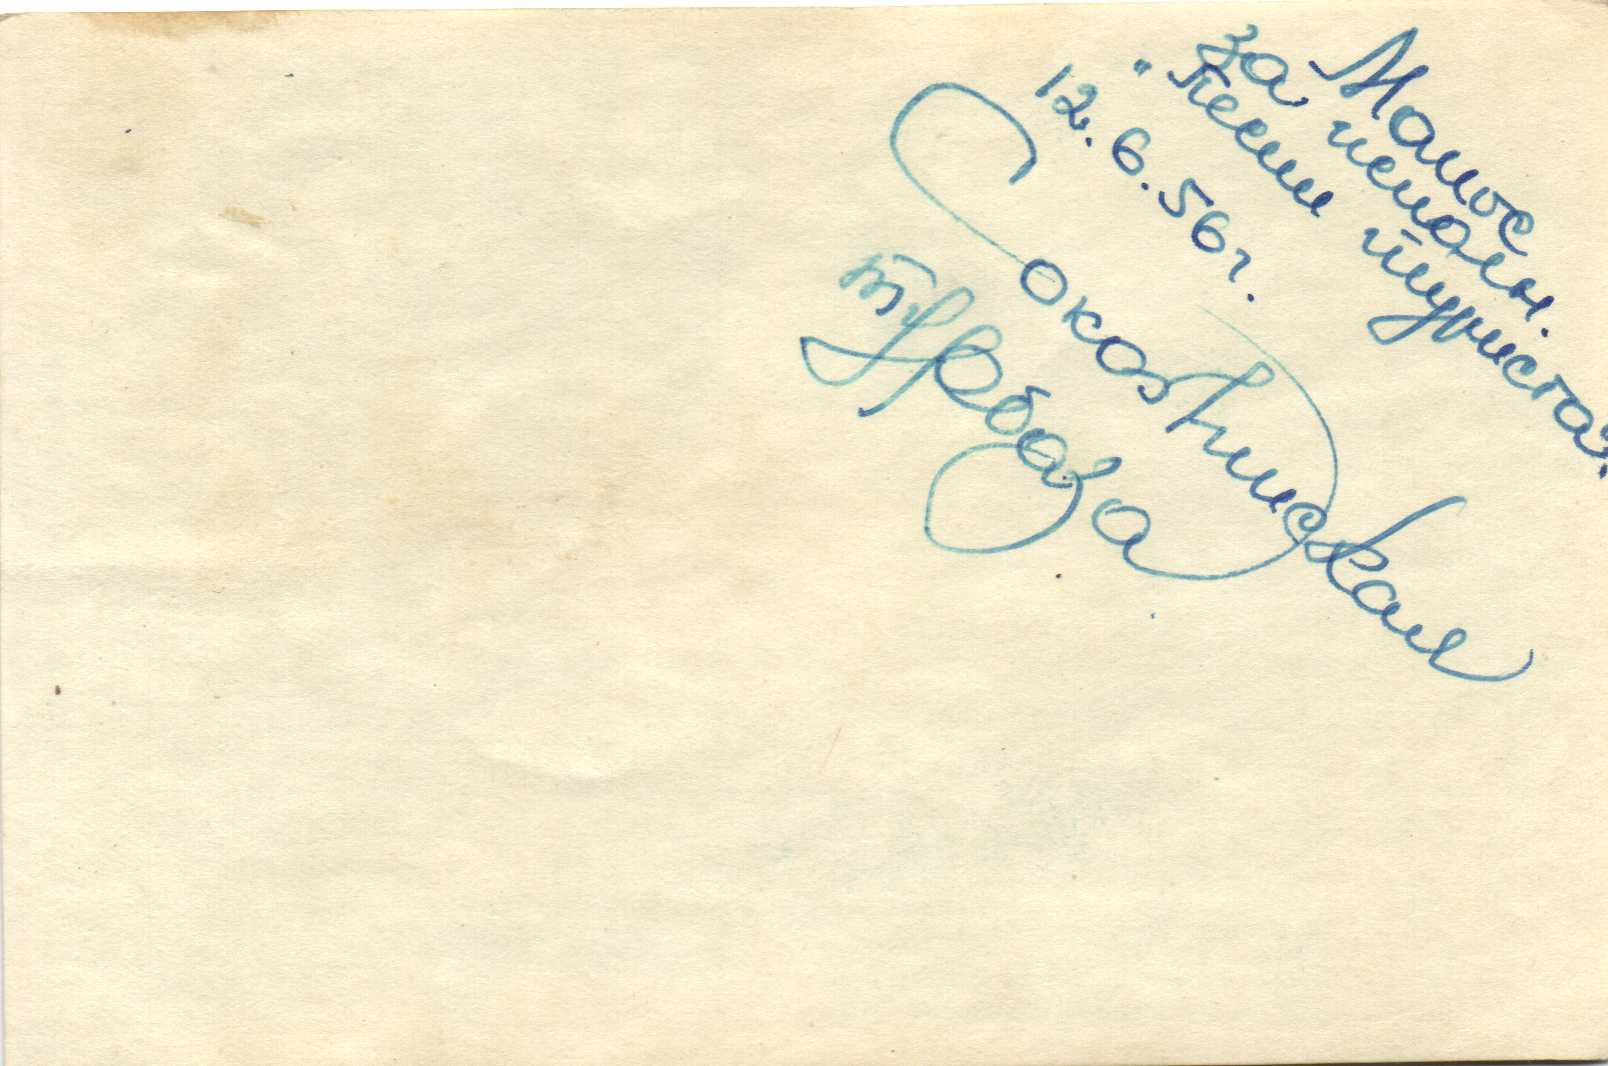 Манос
за исполн.
"Песни туриста".
12.6.56г.
Сокольническая
турбаза